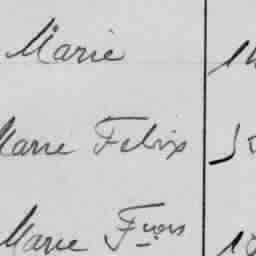 Marie
Marie Felix
Marie Fçois